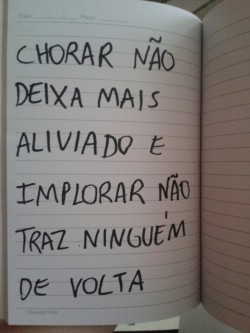 CHORAR NÃO
DEIXA MAIS
ALIVIADO E
IMPLORAR NÃO
TRAZ NINGUÉM
DE VOLTA